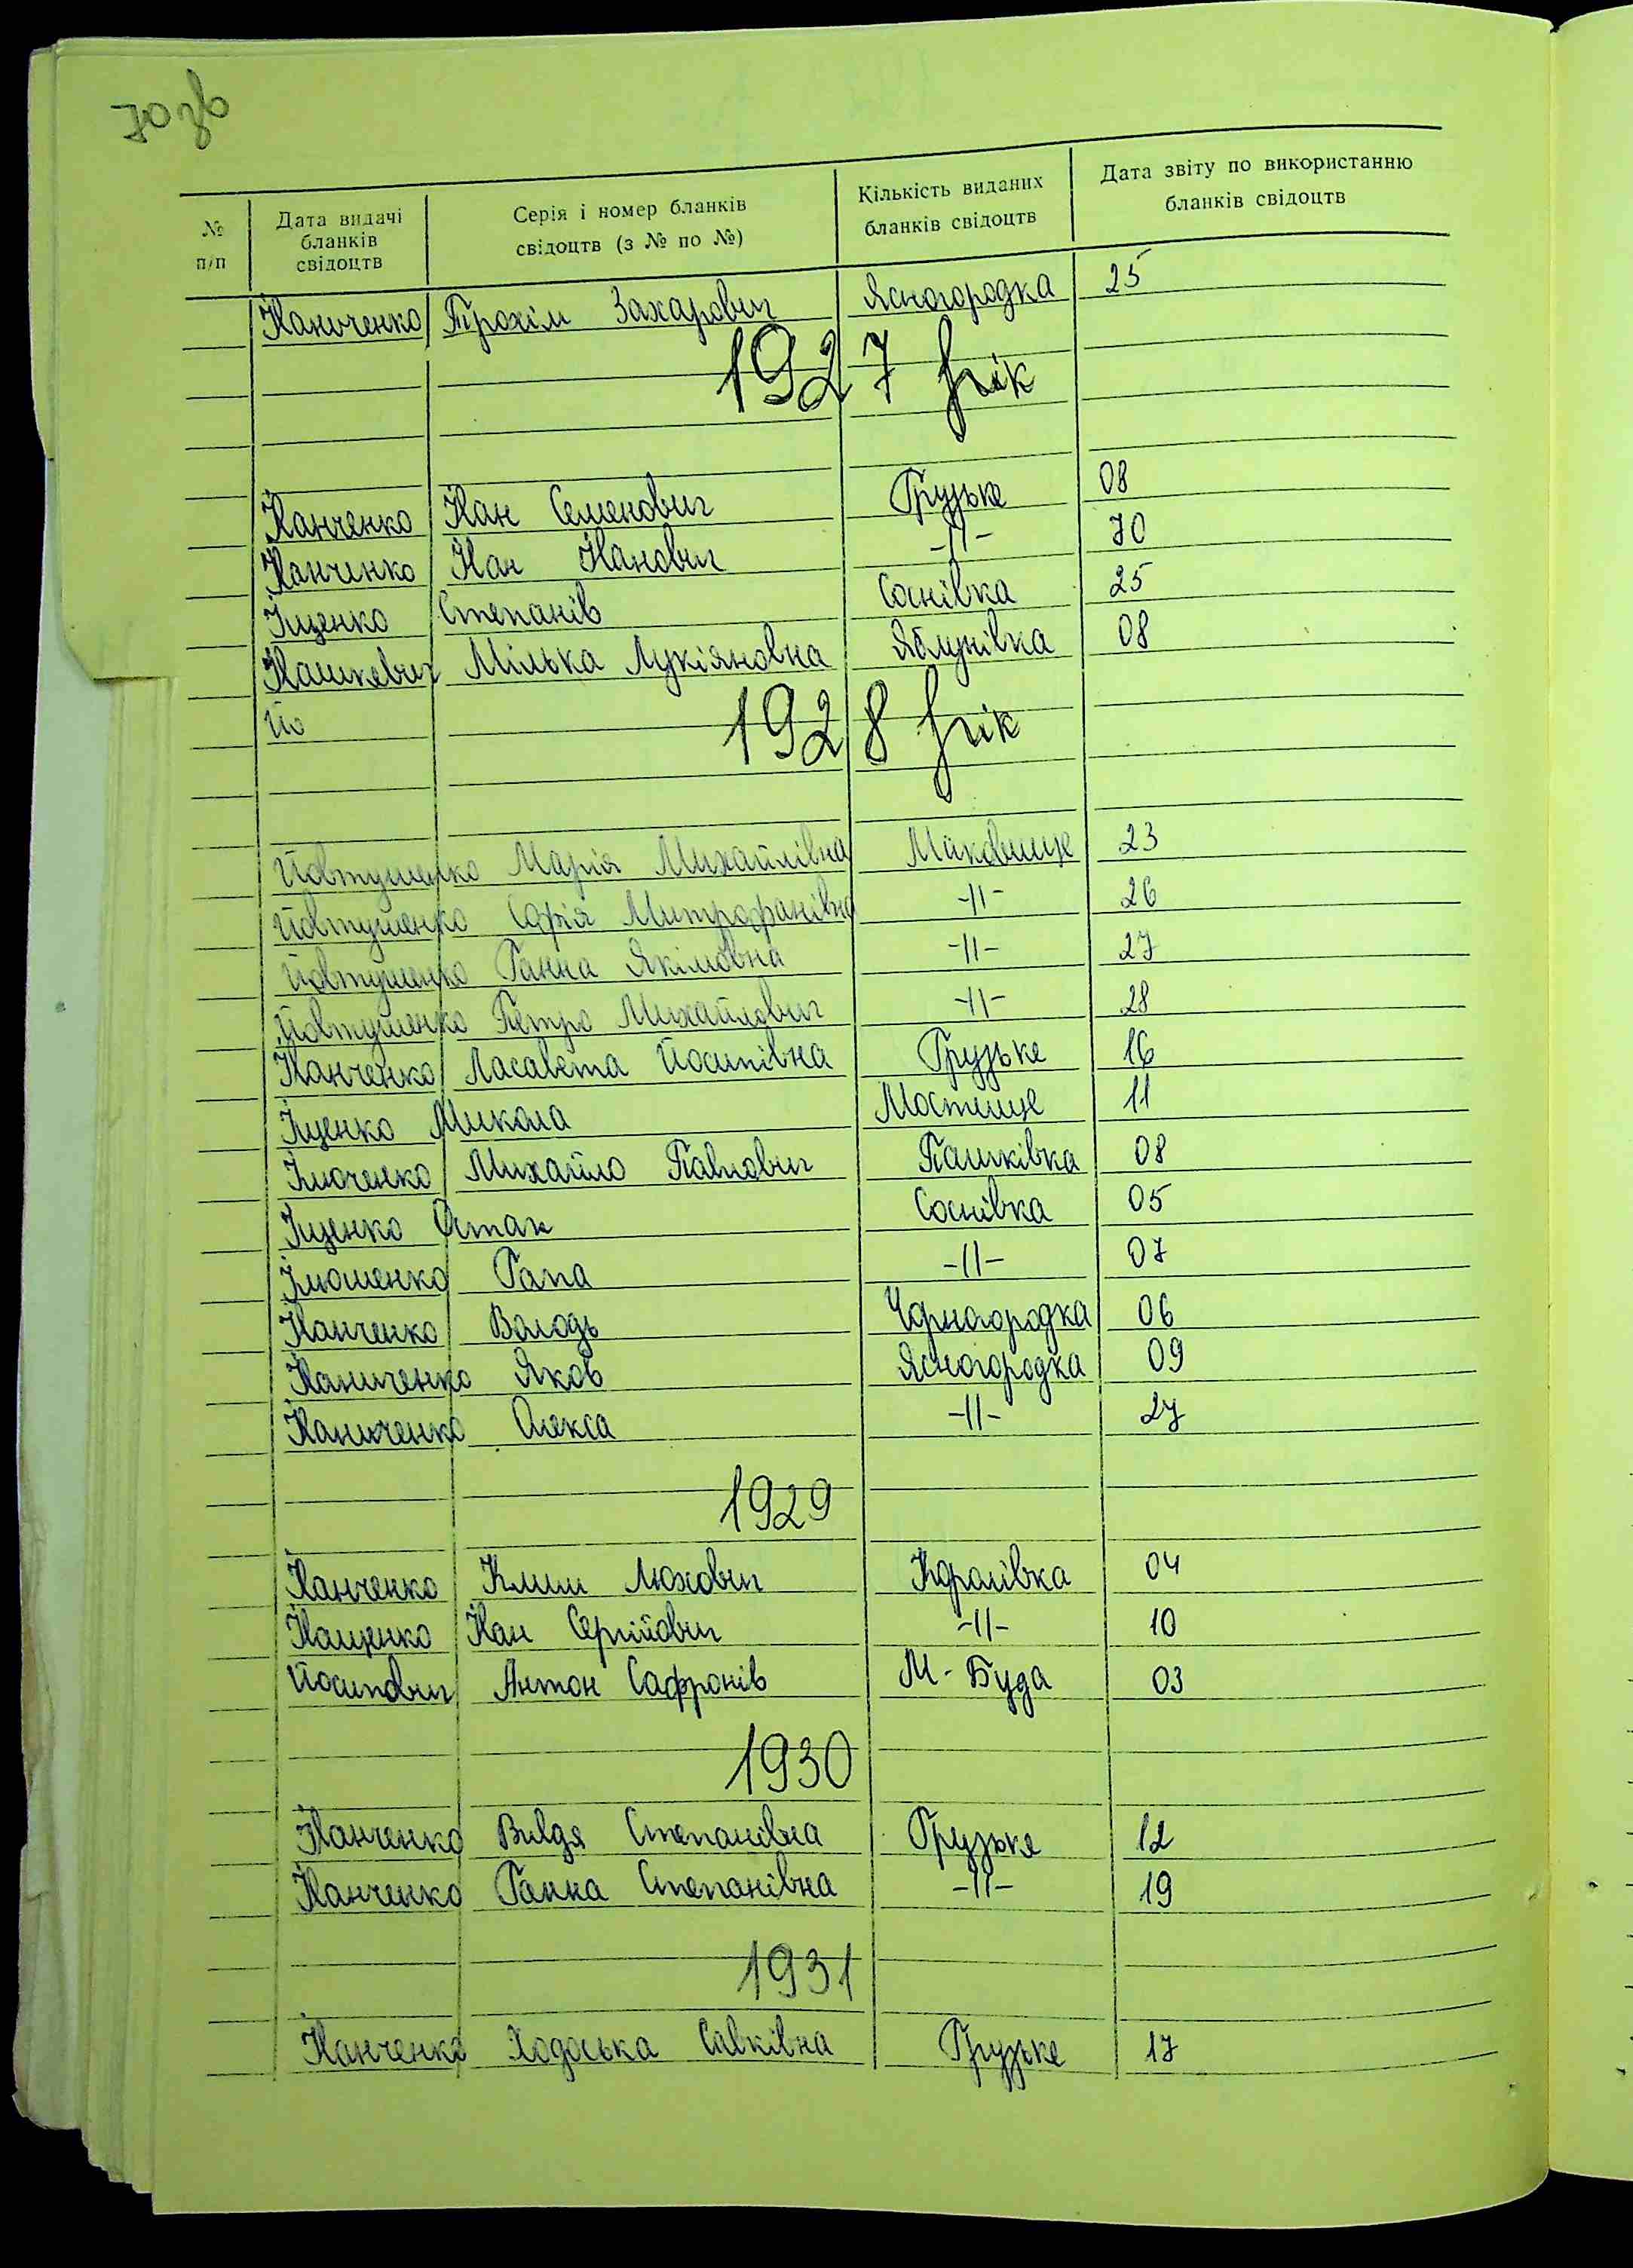 70 зв
№ п/п | Дата видачі бланків свідоцтв | Серія і номер бланків свідоцтв (з № по №) | Кількість виданих бланків свідоцтв | Дата звіту по використанню бланків свідоцтв
Трохим Захарович Ясногородка 25
1927 рік
Іванченко Іван Семенович Грузьке 08
Іванченко Іван Іванович -//- 70
Іщенко Степанів Соснівка 25
Івашкевич Мілька Лукіяновна Яблунівка 08
Йо
1928 рік
Йовтушенко Марія Михайлівна Маковище 23
Йовтушенко Софія Митрофанівна -//- 26
Йовтушенко Ганна Якімовна -//- 27
Йовтушенко Петро Михайлович -//- 28
Іванченко Ласавета Йосипівна Грузьке 16
Іщенко Микола Мостище 11
Ілюченко Михайло Павлович Пашківка 08
Іщенко Остап Соснівка 05
Ілюшенко Гапа -//- 07
Іванченко Володь Чорногородка 06
Яков Ясногородка 09
Олекса -//- 27
1929
Іванченко Клим Люхович Королівка 04
Іващенко Іван Сергійович -//- 10
Йосипович Антон Сафронів М-Буда 03
1930
Іванченко Вивдя Степанівна Грузьке 12
Іванченко Ганна Степанівна -//- 19
1931
Іванченко Ходоська Савківна Грузьке 17